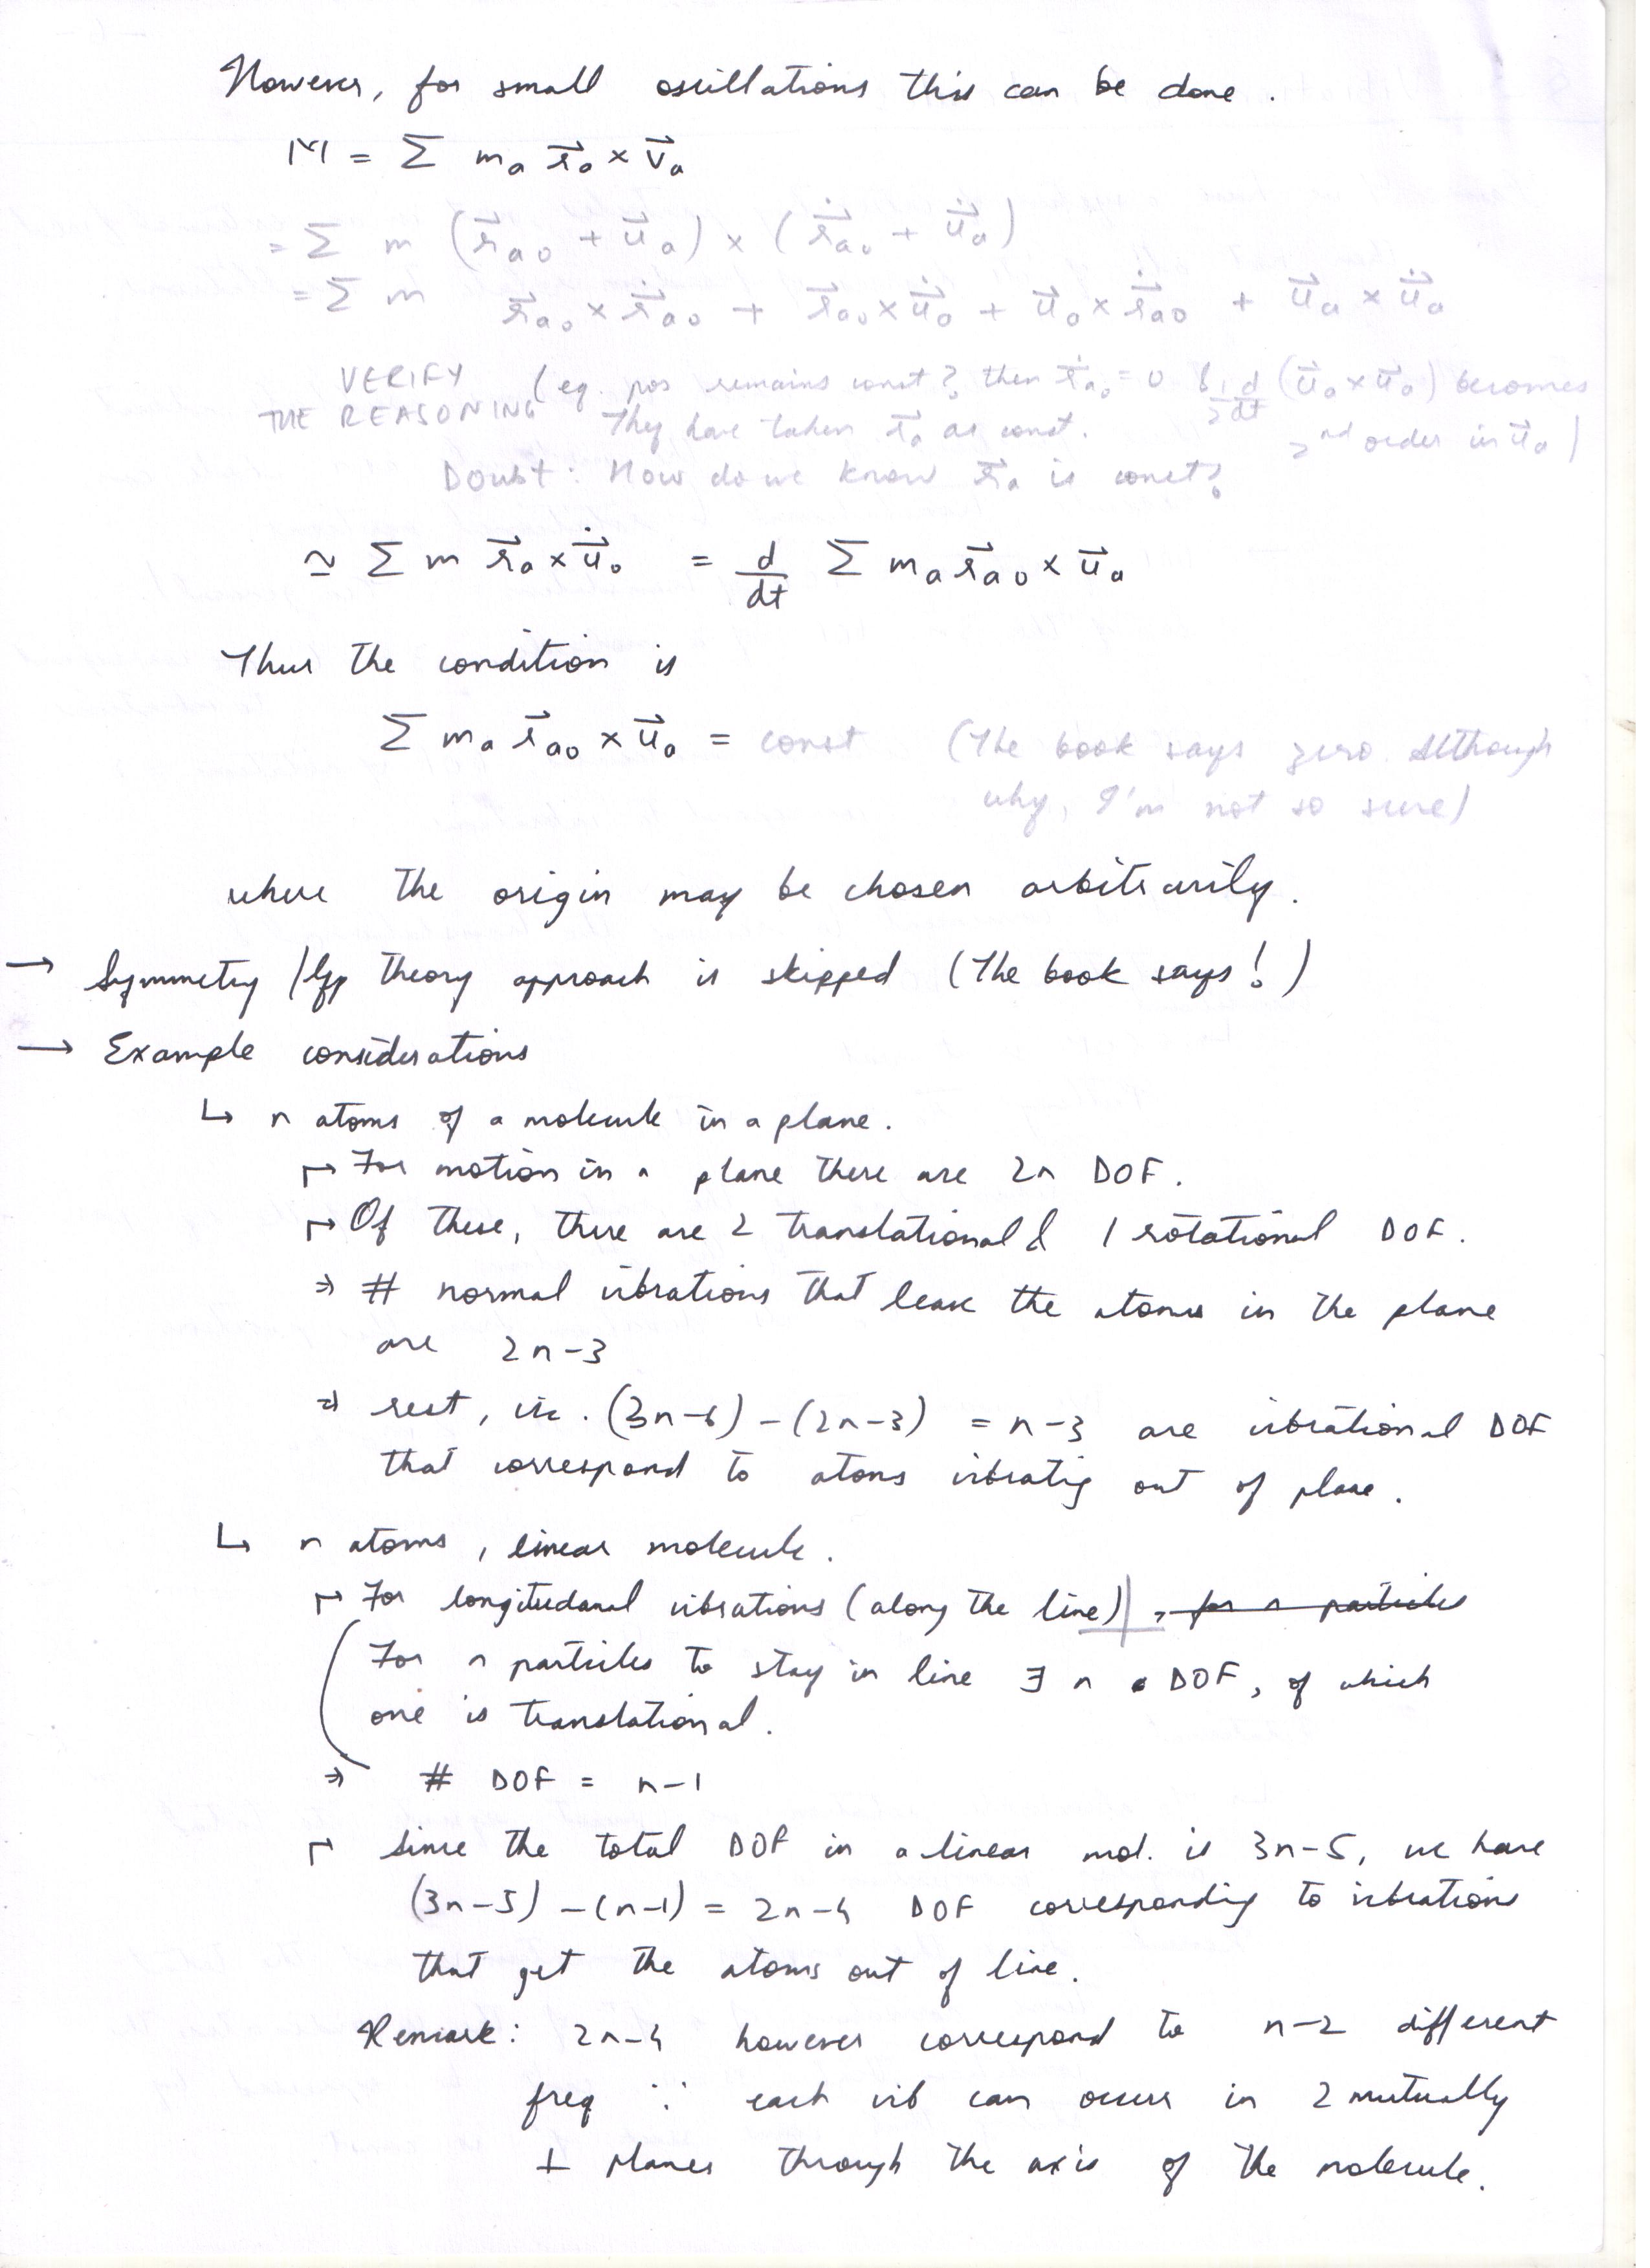 However, for small oscillations this can be done.
M = Σ m_a r⃗_a × v⃗_a
= Σ m (r⃗_a0 + u⃗_a) × (ṙ⃗_a0 + u̇⃗_a)
= Σ m r⃗_a0 × ṙ⃗_a0 + r⃗_a0 × u̇⃗_a + u⃗_a × ṙ⃗_a0 + u⃗_a × u̇⃗_a
VERIFY THE REASONING (eq. pos remains const?, then ṙ⃗_a0 = 0 & 1/2 d/dt (u⃗_a × u⃗_a) becomes
2nd order in u⃗_a)
They have taken r⃗_a as const.
Doubt: How do we know r⃗_a is const?
≃ Σ m r⃗_a × u̇⃗_a = d/dt Σ m_a r⃗_a0 × u⃗_a
Thus the condition is
Σ m_a r⃗_a0 × u⃗_a = const (The book says zero. Although
why, I'm not so sure)
where the origin may be chosen arbitrarily.
→ Symmetry / Gp theory approach is skipped (The book says!)
→ Example considerations
↳ n atoms of a molecule in a plane.
↦ For motion in a plane there are 2n DOF.
↦ Of these, there are 2 translational & 1 rotational DOF.
⇒ # normal vibrations that leave the atoms in the plane
are 2n-3
⇒ rest, viz. (3n-6) - (2n-3) = n-3 are vibrational DOF
that correspond to atoms vibratig out of plane.
↳ n atoms, linear molecule.
↦ For longitudanal vibrations (along the line), for n particles
For n particles to stay in line ∃ n DOF, of which
one is translational.
⇒ # DOF = n-1
↦ Since the total DOF in a linear mol. is 3n-5, we have
(3n-5) - (n-1) = 2n-4 DOF correspondig to vibrations
that get the atoms out of line.
Remark: 2n-4 however correspond to n-2 different
freq ∵ each vib can occur in 2 mutually
⊥ planes through the axis of the molecule.